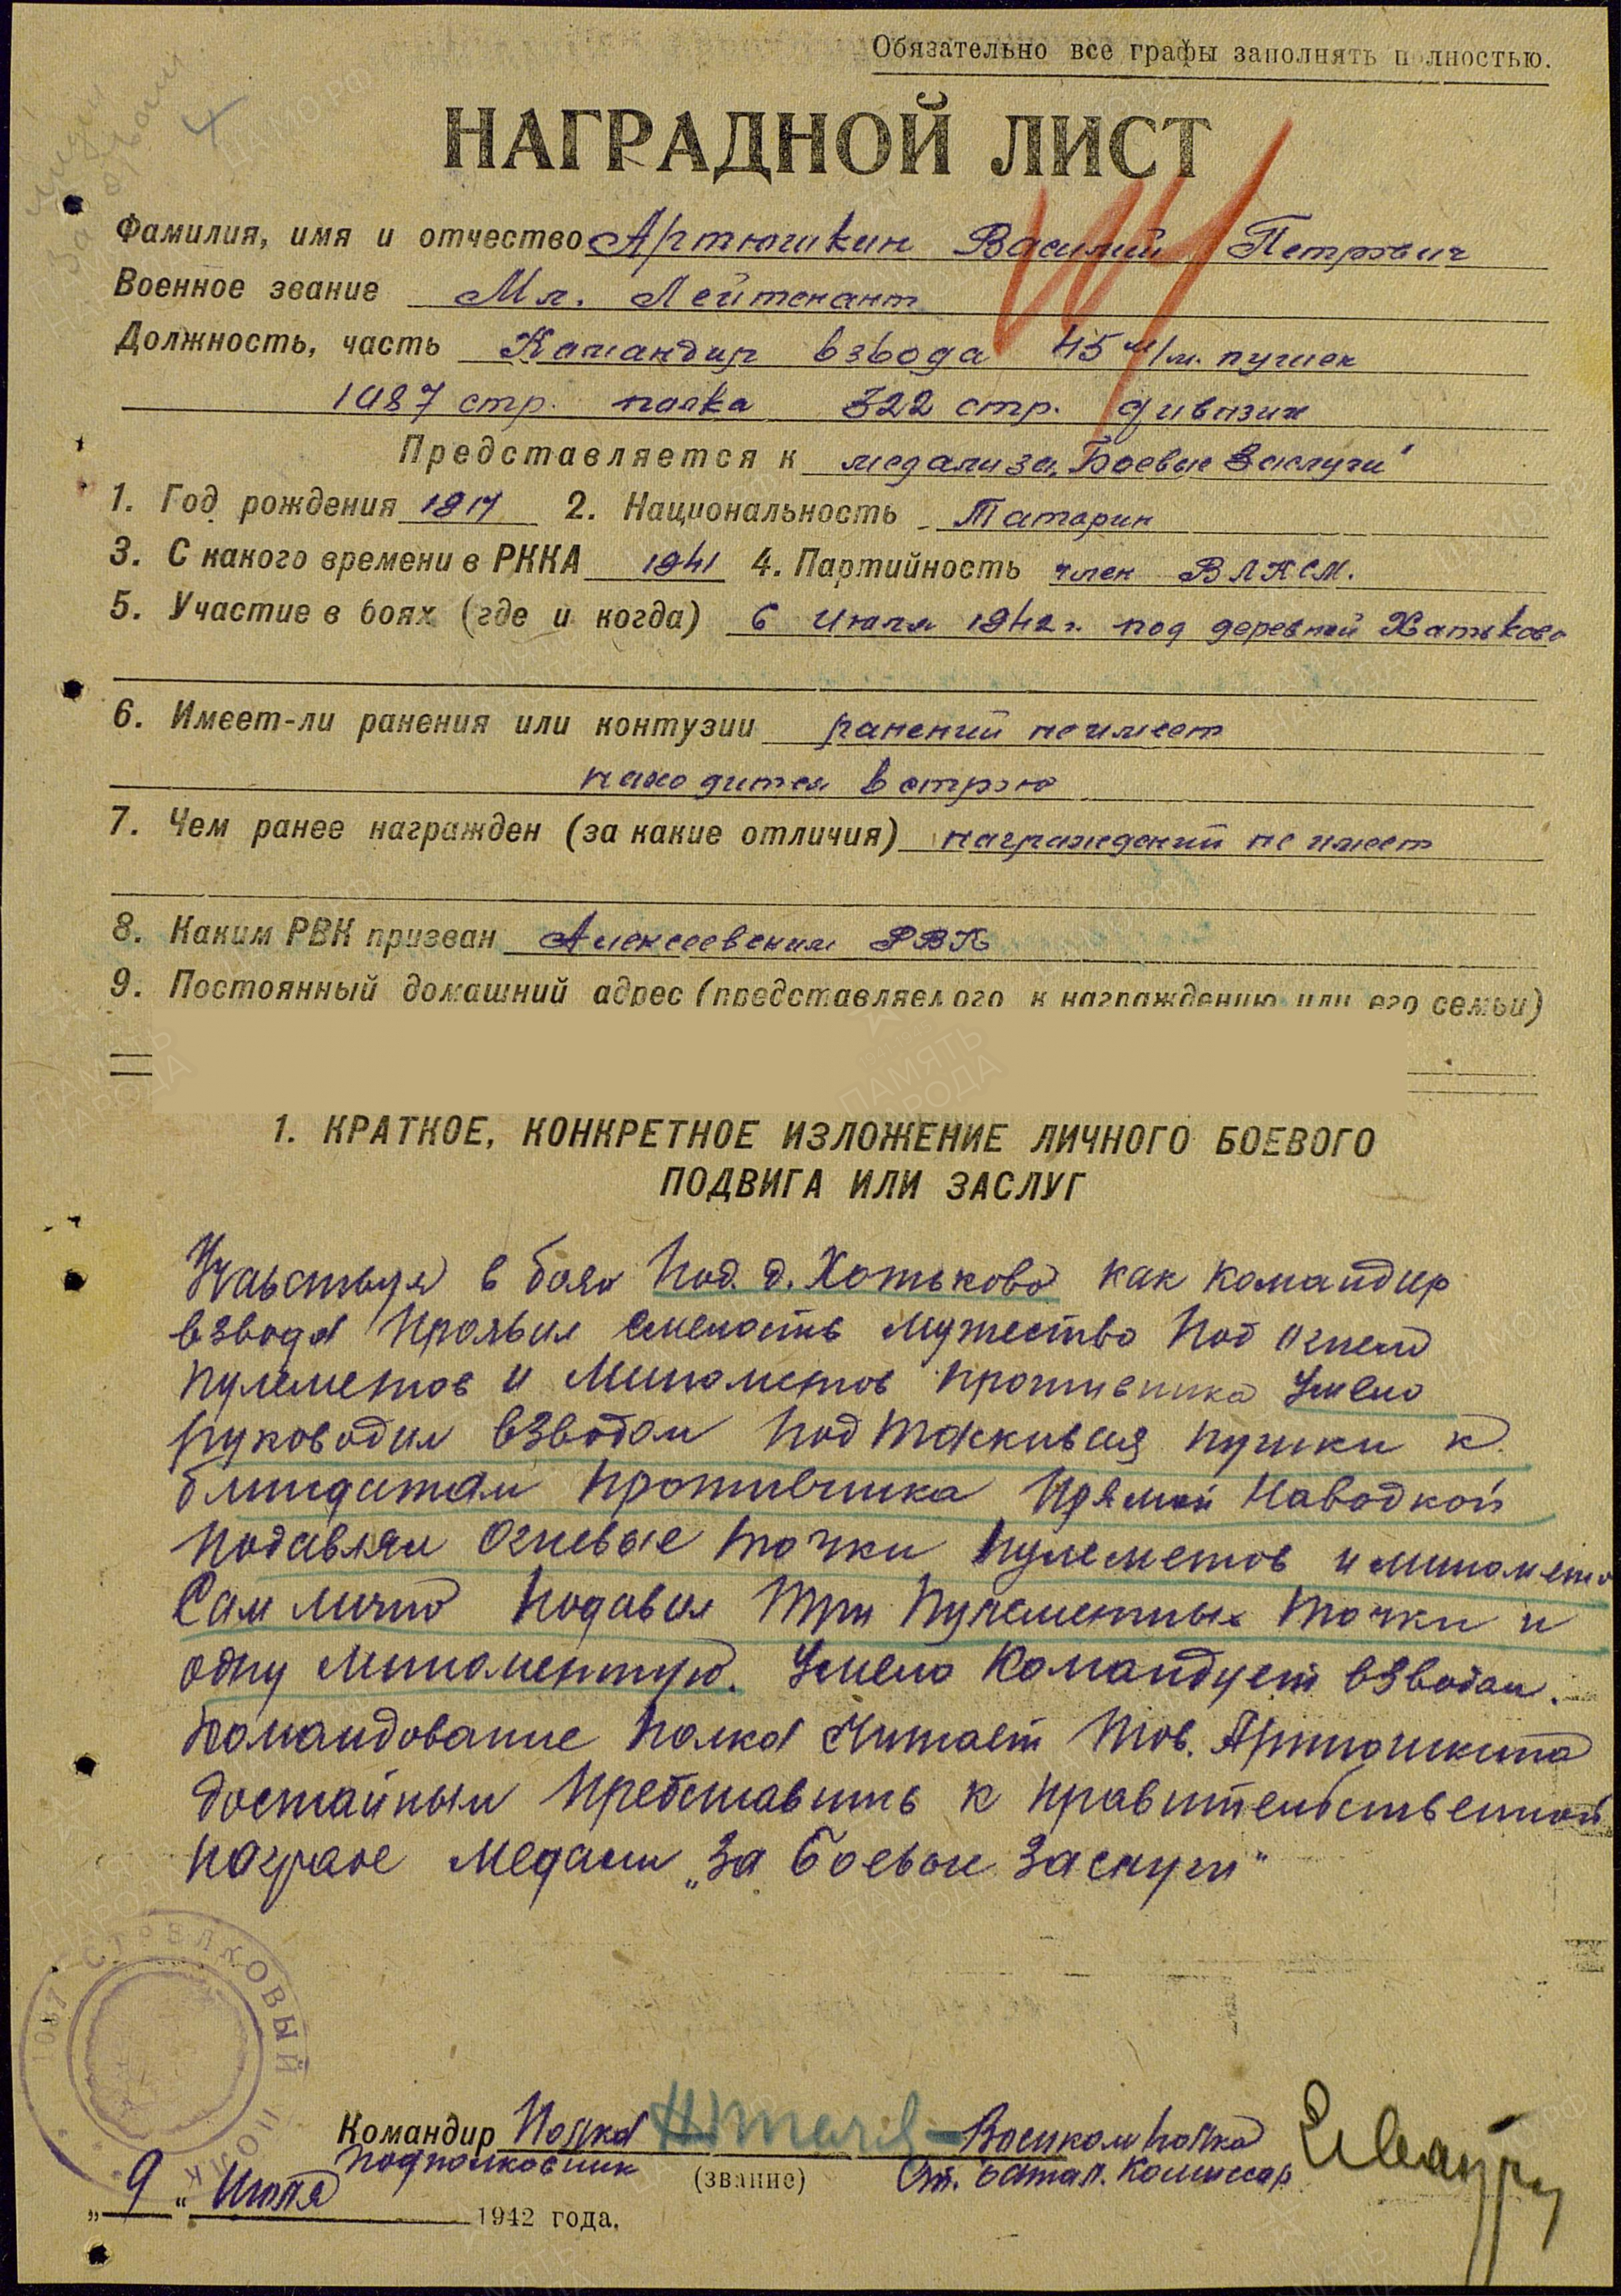 Обязательно все графы заполнять полностью.
НАГРАДНОЙ ЛИСТ
Фамилия, имя и отчество Артюшкин Василий Петрович
Военное звание Мл. Лейтенант
Должность, часть Командир взвода 45 м/м. пушек
1087 стр. полка 322 стр. дивизии
Представляется к медали за „Боевые Заслуги"
1. Год рождения 1917 2. Национальность Татарин
3. С какого времени в РККА 1941 4. Партийность член ВЛКСМ.
5. Участие в боях (где и когда) 6 Июля 1942 г. под деревней Хатьково
6. Имеет-ли ранения или контузии ранений не имеет
находится в строю
7. Чем ранее награжден (за какие отличия) награждений не имеет
8. Каким РВК призван Алексеевским РВК
9. Постоянный домашний адрес (представляемого к награждению или его семьи)
1. КРАТКОЕ, КОНКРЕТНОЕ ИЗЛОЖЕНИЕ ЛИЧНОГО БОЕВОГО
ПОДВИГА ИЛИ ЗАСЛУГ
Участвуя в бою под д. Хотьково как командир
взвода проявил смелость мужество под огнем
пулеметов и минометов противника Умело
руководил взводом подтаскивая пушки к
блиндажам противника прямой наводкой
подавлял огневые точки пулеметов и миномето
Сам лично подавил три пулеметных точки и
одну минометную. Умело командует взводом.
Командование полка считает тов. Артюшкина
достойным представить к правительственной
награде медали „За боевые заслуги"
1087 СТРЕЛКОВЫЙ ПОЛК
Командир Полка Военком полка
подполковник (звание) Ст. батал. Комиссар
„9" Июля 1942 года.